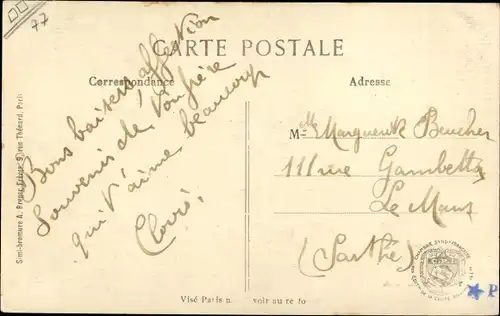 77
CARTE POSTALE
Correspondance
Adresse
Bons baisers affection
Souvenir de ton frère
qui t'aime beaucoup
Clovis.
M Marguerite Beucher
111 rue Gambetta
Le Mans
(Sarthe)
Simi-bromure A. Breger Frères, 9, rue Thénard, Paris
CHAMBRE SYNDICALE
Visé Paris n voir au recto